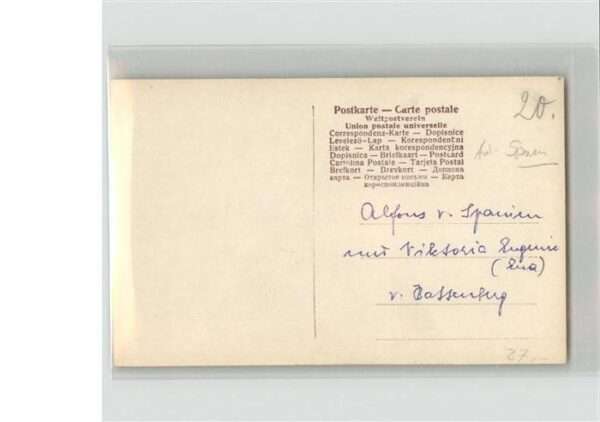 20.
Postkarte — Carte postale
Weltpostverein
Union postale universelle
Correspondenz-Karte — Dopisnice
Levelező-Lap — Korespondentni
listek — Karta korespondencyjna
Dopisnica — Briefkaart — Postcard
Cartolina Postale — Tarjeta Postal
Brefkort — Brevkort — Дописна
карта — Открытое письмо — Карта
корреспонденційна
Spanien
Alfons v. Spanien
mit Viktoria Eugenie
(Ena)
v. Battenberg
27,-